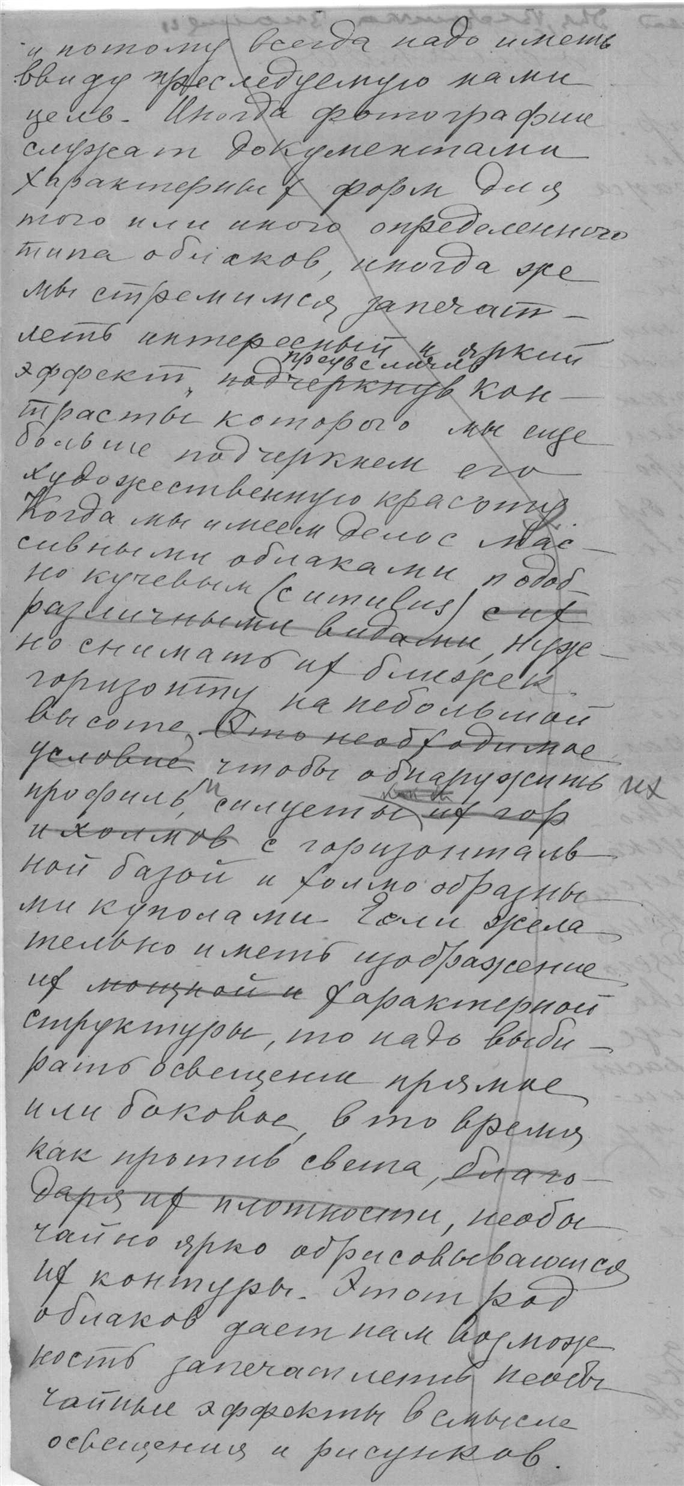 и потому всегда надо иметь
ввиду преследуемую нами
цель. Иногда фотографии
служат документами
характерных форм для
того или иного определенного
типа облаков, иногда же
мы стремимся запечат-
леть интересный и яркий
преувеличив
эффект, подчеркнув кон-
трасты которого мы еще
больше подчеркнем его
художественную красоту
Когда мы имеем дело с мас-
сивными облаками подоб
но кучевым (cumulus) с их
различными видами, нуж-
но снимать их ближе к
горизонту на небольшой
высоте. Это необходимое
условие, чтобы обнаружить их
профиль, и силуеты их гор
и холмов с горизонталь-
ной базой и холмообразны-
ми куполами. Если жела-
тельно иметь изображение
их мощной и характерной
структуры, то надо выби-
рать освещение прямое
или боковое, в то время
как против света, благо-
даря их плотности, необы-
чайно ярко обрисовываются
их контуры. Этот род
облаков дает нам возмож
ность запечатлеть необы
чайные эффекты в смысле
освещения и рисунков.